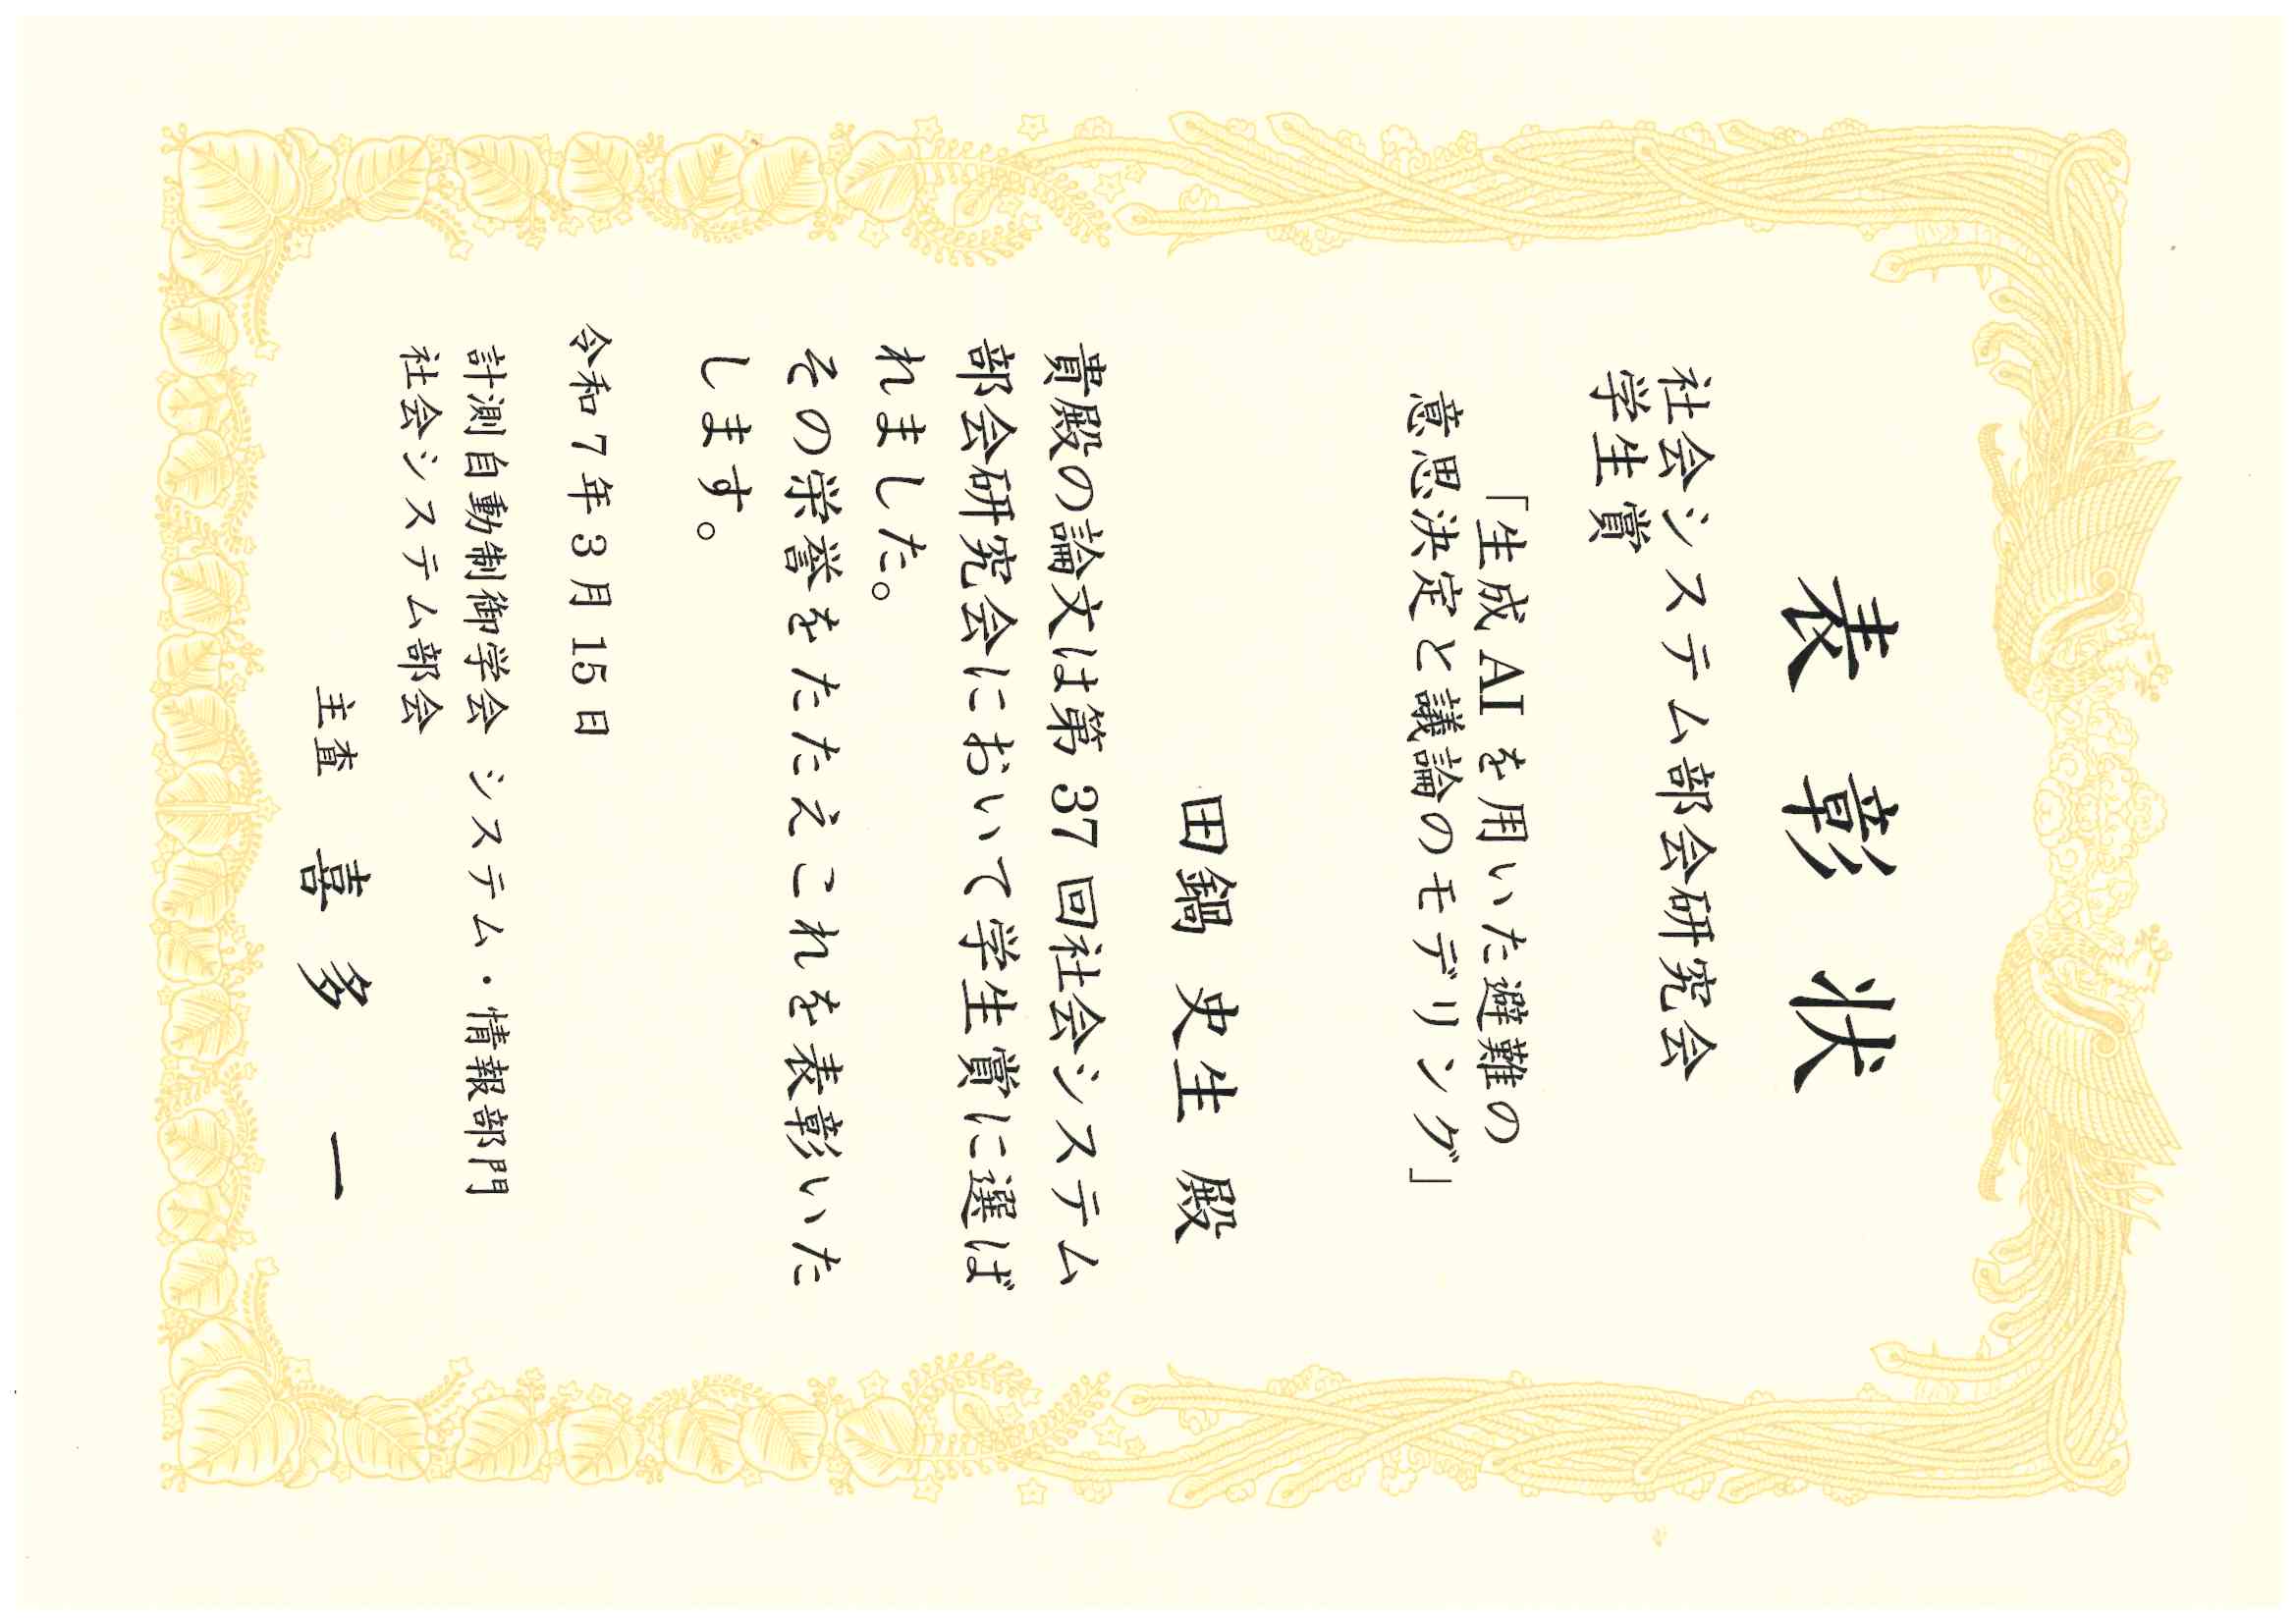 表彰状
社会システム部会研究会
学生賞
「生成 AI を用いた避難の
意思決定と議論のモデリング」
田鍋 史生 殿
貴殿の論文は第 37 回社会システム
部会研究会において学生賞に選ば
れました。
その栄誉をたたえこれを表彰いた
します。
令和 7 年 3 月 15 日
計測自動制御学会 システム・情報部門
社会システム部会
主査 喜多 一